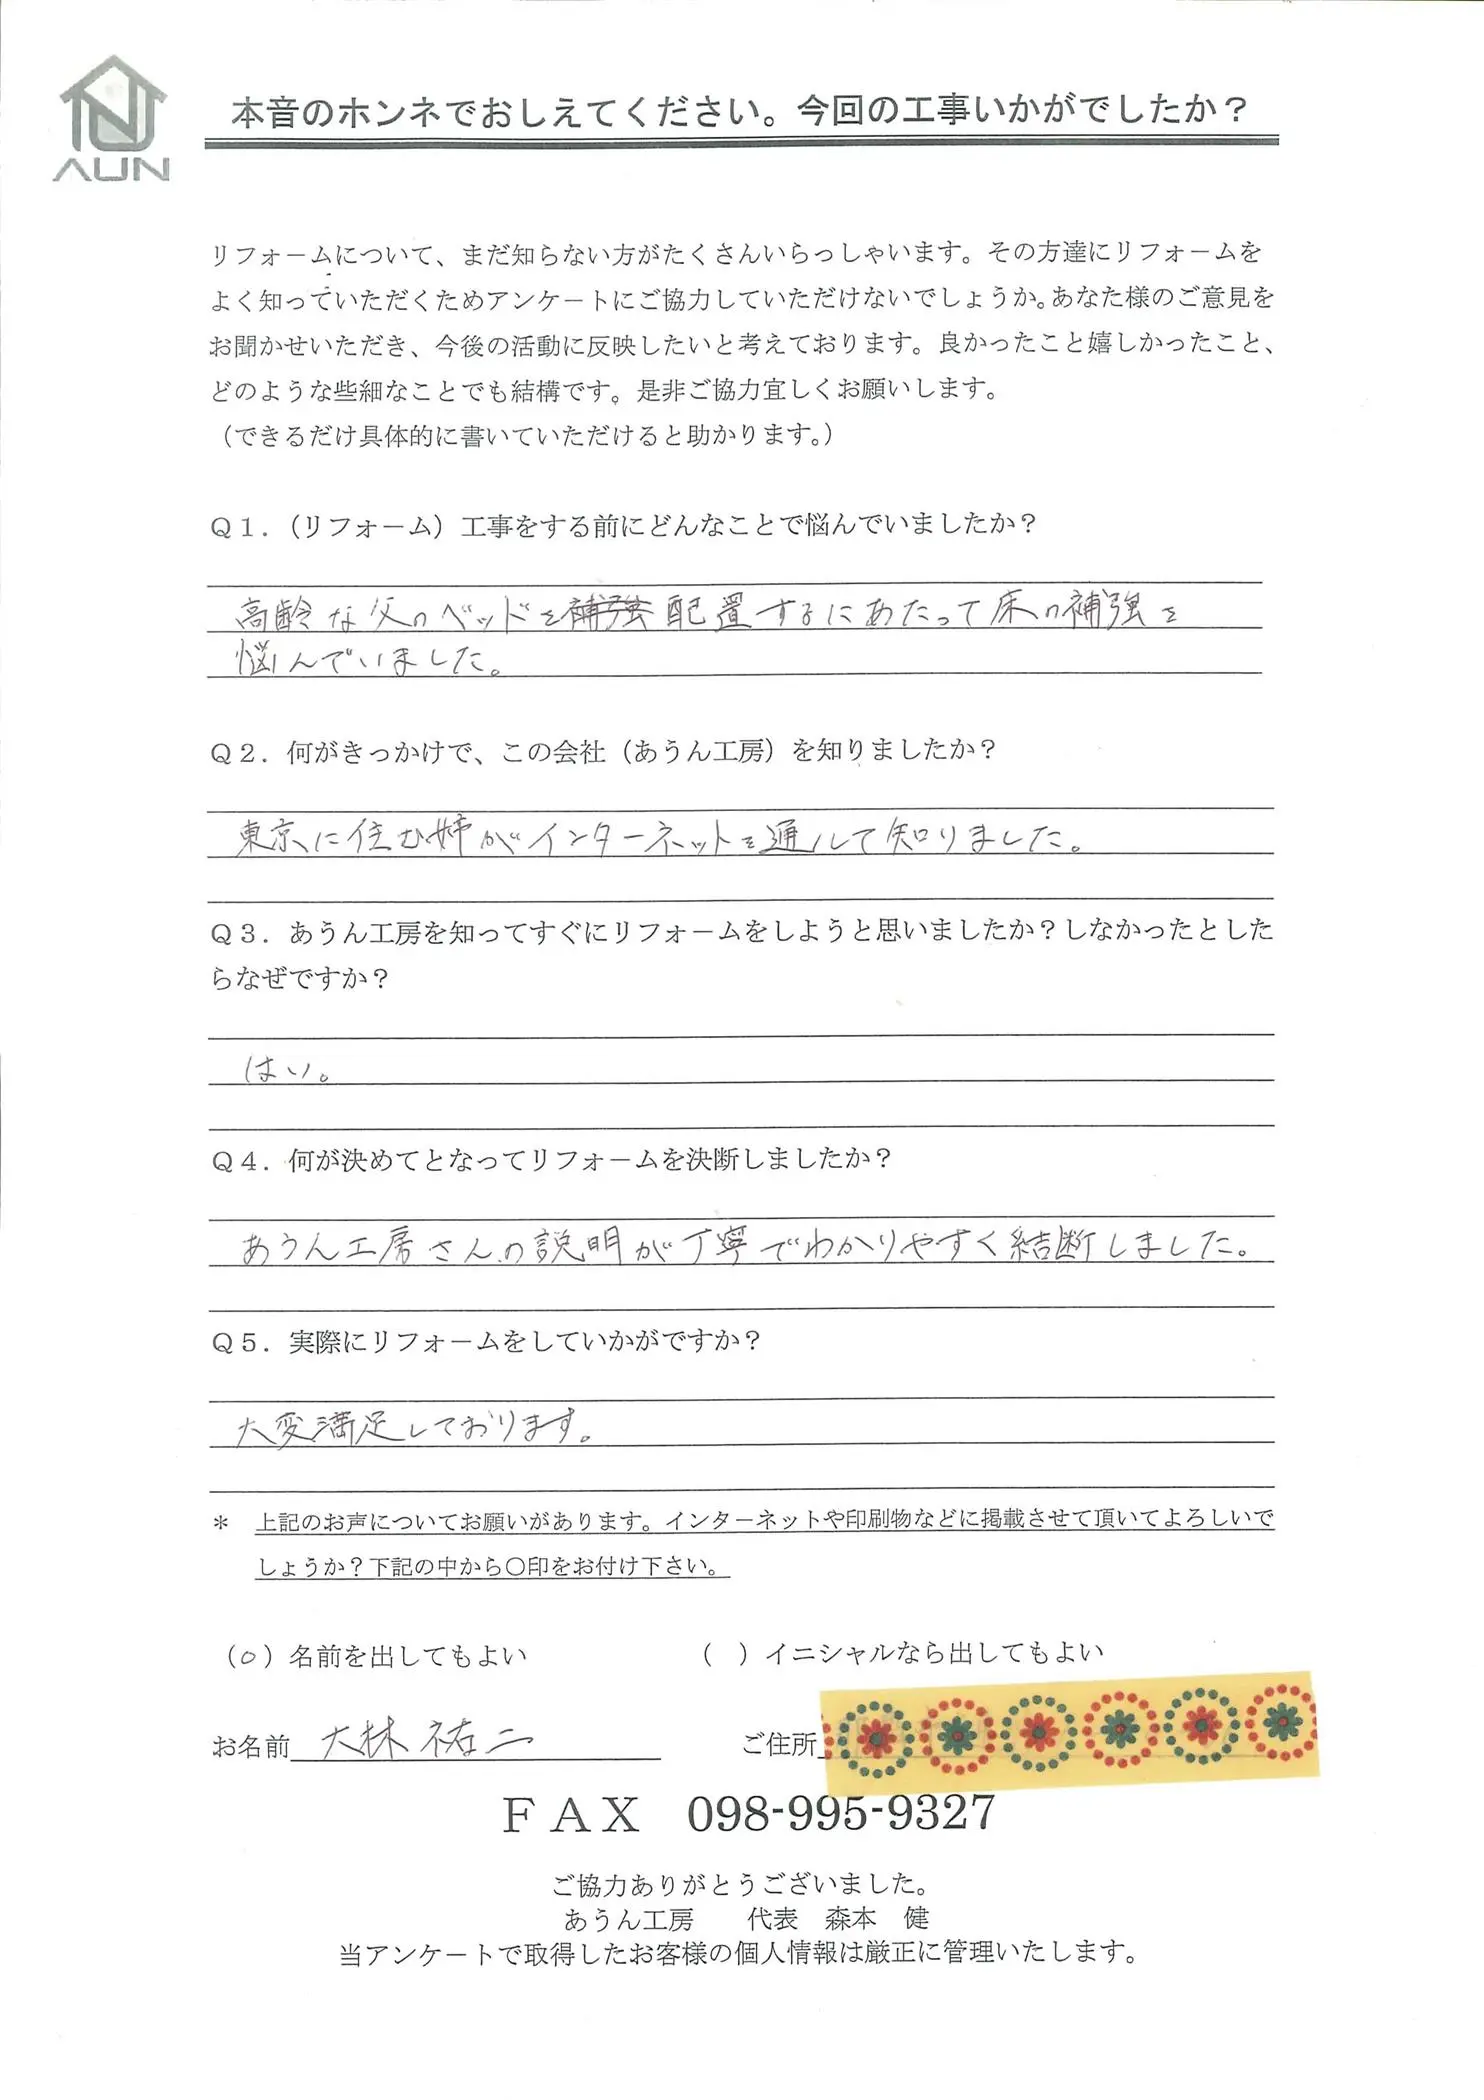 AUN
本音のホンネでおしえてください。今回の工事いかがでしたか？
リフォームについて、まだ知らない方がたくさんいらっしゃいます。その方達にリフォームを
よく知っていただくためアンケートにご協力していただけないでしょうか。あなた様のご意見を
お聞かせいただき、今後の活動に反映したいと考えております。良かったこと嬉しかったこと、
どのような些細なことでも結構です。是非ご協力宜しくお願いします。
（できるだけ具体的に書いていただけると助かります。）
Ｑ１．（リフォーム）工事をする前にどんなことで悩んでいましたか？
高齢な父のベッドを補強配置するにあたって床の補強を
悩んでいました。
Ｑ２．何がきっかけで、この会社（あうん工房）を知りましたか？
東京に住む姉がインターネットを通して知りました。
Ｑ３．あうん工房を知ってすぐにリフォームをしようと思いましたか？しなかったとした
らなぜですか？
はい。
Ｑ４．何が決めてとなってリフォームを決断しましたか？
あうん工房さんの説明が丁寧でわかりやすく結断しました。
Ｑ５．実際にリフォームをしていかがですか？
大変満足しております。
＊ 上記のお声についてお願いがあります。インターネットや印刷物などに掲載させて頂いてよろしいで
しょうか？下記の中から〇印をお付け下さい。
（○）名前を出してもよい （ ）イニシャルなら出してもよい
お名前 大林 祐二 ご住所
ＦＡＸ 098-995-9327
ご協力ありがとうございました。
あうん工房 代表 森本 健
当アンケートで取得したお客様の個人情報は厳正に管理いたします。